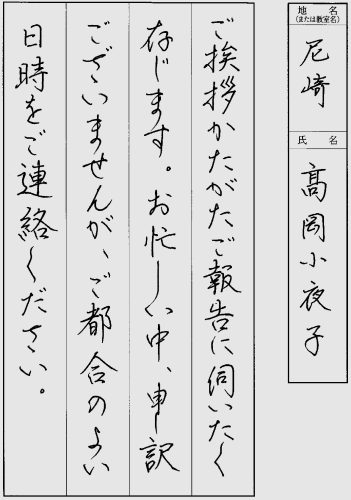 地名
(または教室名)
尼崎
氏名
髙岡小夜子
ご挨拶かたがたご報告に伺いたく
存じます。お忙しい中、申訳
ございませんが、ご都合のよい
日時をご連絡ください。